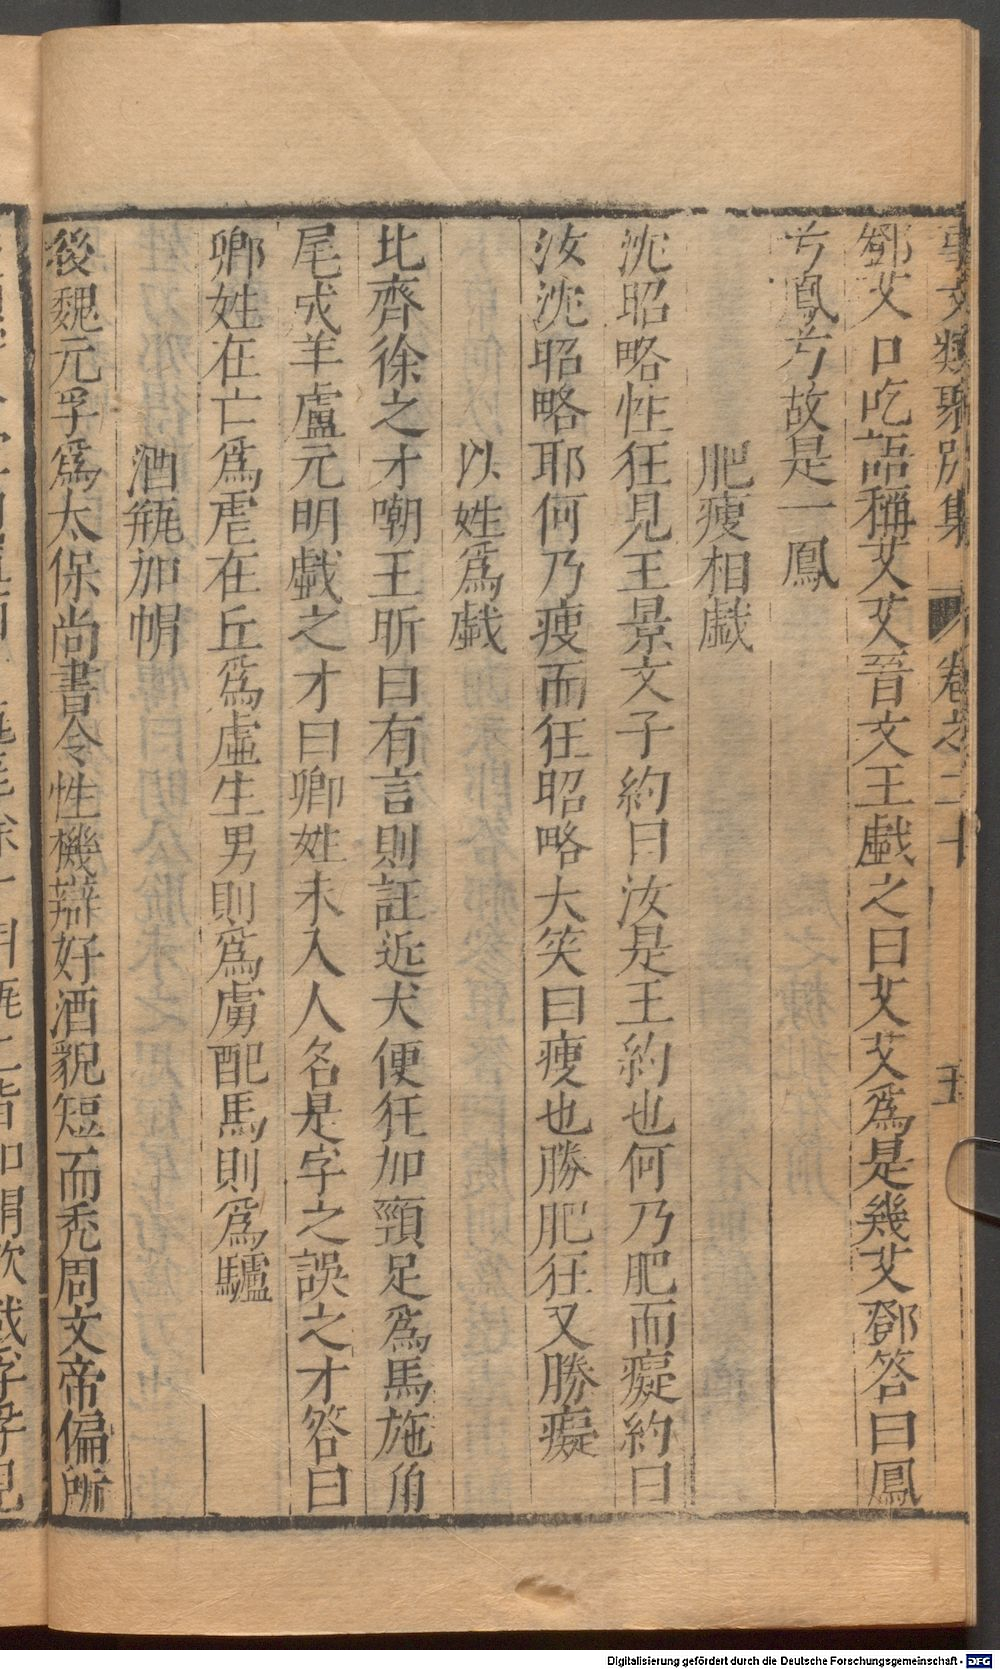 事文類聚別集 卷之二十 五
鄧艾口吃語稱艾艾晉文王戱之曰艾艾爲是幾艾鄧答曰鳳
兮鳳兮故是一鳳
肥瘦相戱
沈昭略性狂見王景文子約曰汝是王約也何乃肥而癡約曰
汝沈昭略耶何乃瘦而狂昭略大笑曰瘦也勝肥狂又勝癡
以姓爲戱
比齊徐之才嘲王昕曰有言則託近犬便狂加頸足爲馬施角
尾成羊盧元明戱之才曰卿姓未入人名是字之誤之才答曰
卿姓在亡爲虐在丘爲虛生男則爲虜配馬則爲驢
酒瓶加帽
後魏元孚爲太保尚書令性機辯好酒貌短而禿周文帝偏所
Digitalisierung gefördert durch die Deutsche Forschungsgemeinschaft - DFG